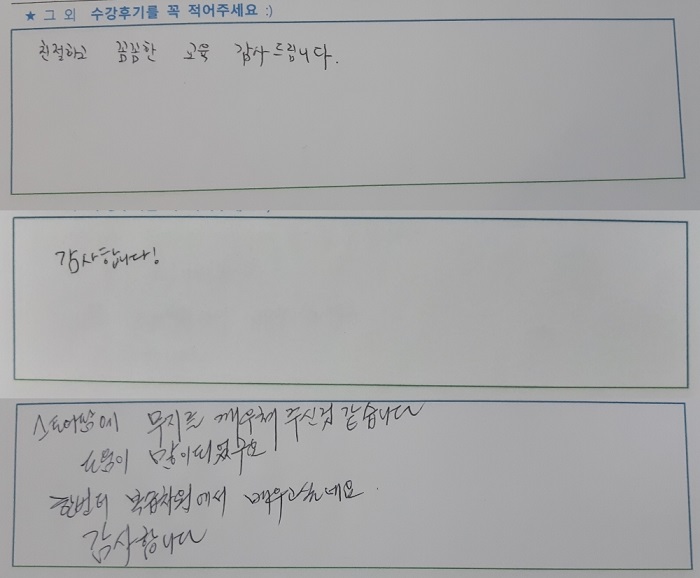 ★ 그 외 수강후기를 꼭 적어주세요 :)
친절하고 꼼꼼한 교육 감사드립니다.
감사합니다!
스토어팜에 무지를 깨우쳐 주신것 같습니다
도움이 많이되었구요
한번더 복습차원에서 배우고싶네요.
감사합니다